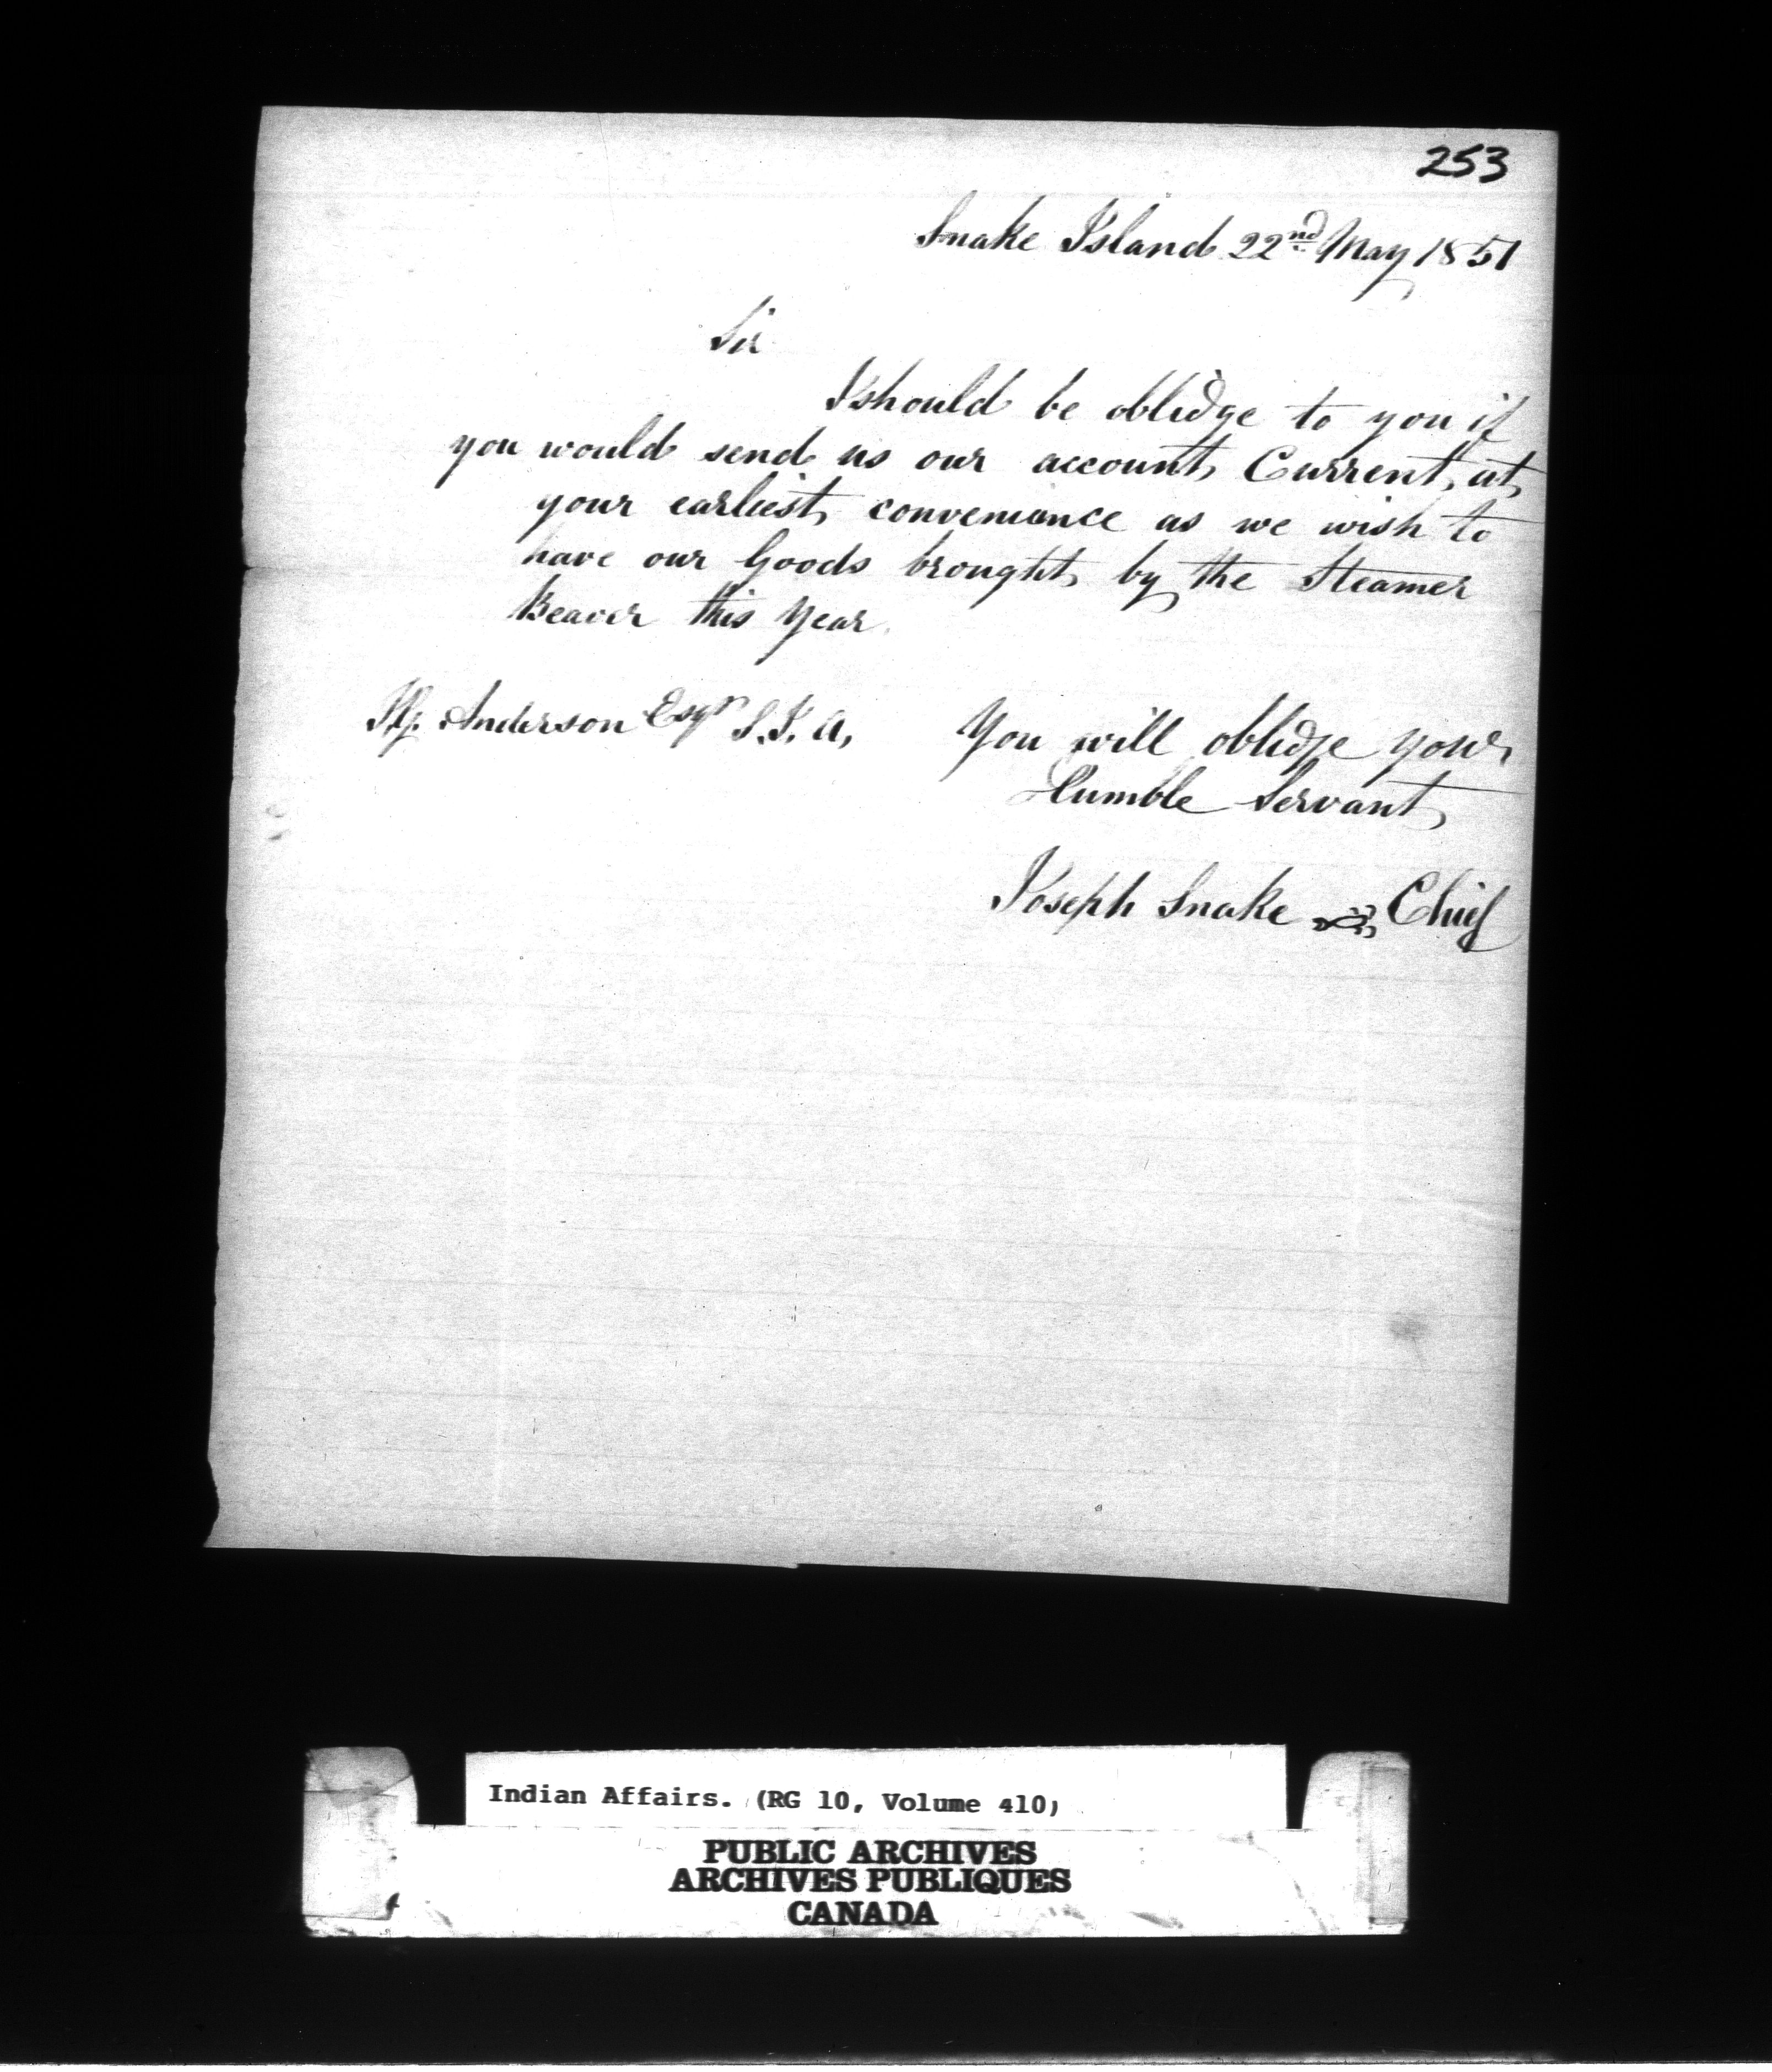 253
Snake Island 22nd May 1851
Sir
I should be oblidge to you if
you would send us our account Current, at
your earliest convenience as we wish to
have our Goods brought by the Steamer
Beaver this year.
Anderson Esqr S.I.A,
You will oblidge your
Humble Servant
Joseph Snake Chief
Indian Affairs. (RG 10, Volume 410)
PUBLIC ARCHIVES
ARCHIVES PUBLIQUES
CANADA